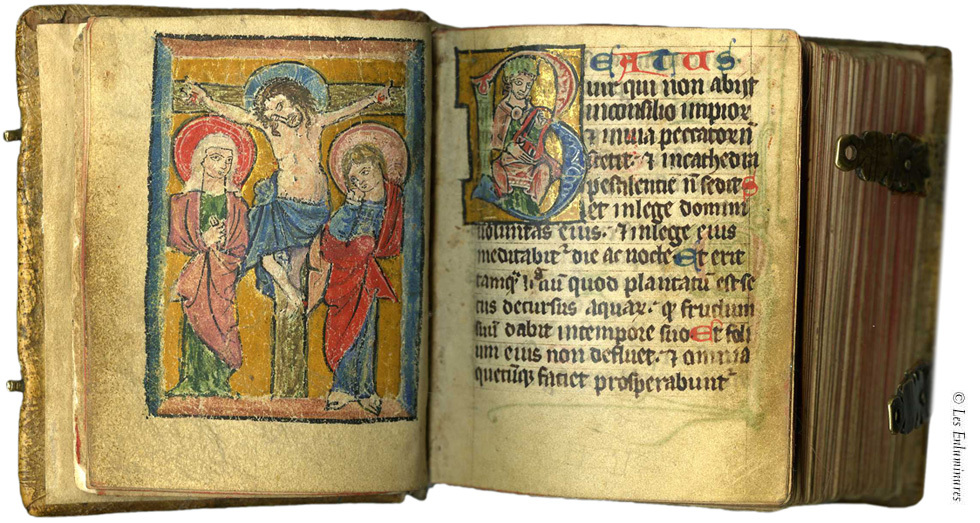 BEATUS
uir qui non abijt
in consilio impior
& in uia peccatorū
stetit· & in cathedra
pestilentie n̄ sedit
et in lege domini
uoluntas eius· & in lege eius
meditabitᷣ die ac nocte Et erit
tamqᷓ lignū quod plantatū est se
cus decursus aquaꝝ· qᷓ fructum
suū dabit in tempore suo Et foli
um eius non defluet· & omnia
quecūqꝫ faciet prosperabuntᷣ
© Les Enluminures